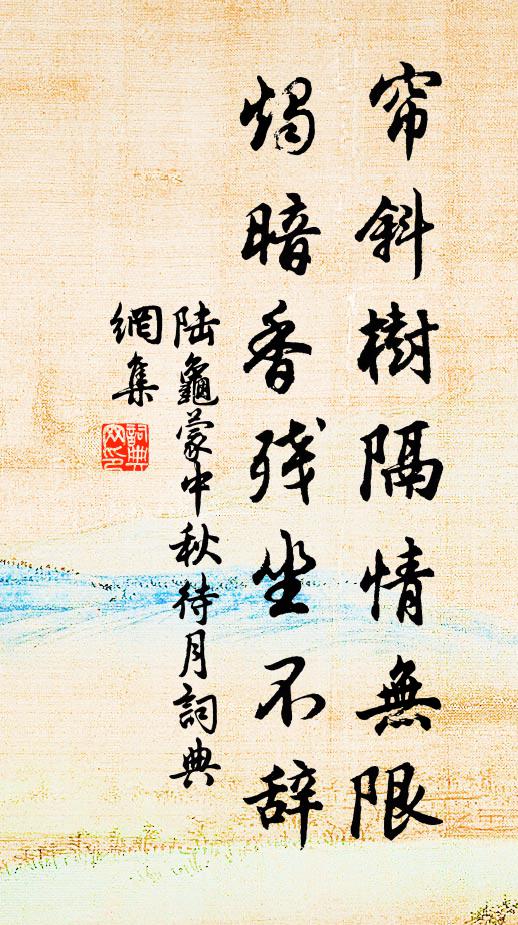 帘斜樹隔情無限
燭暗香残坐不辞
陆龜蒙中秋待月詞典
網集
詞典